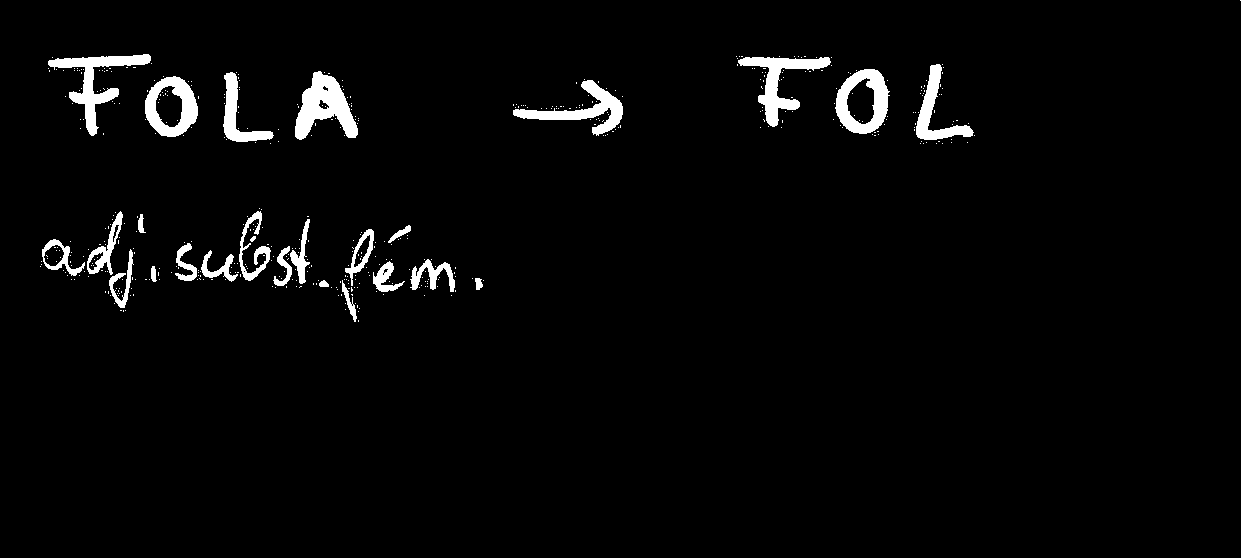 FOLA → FOL
adj. subst. fém.